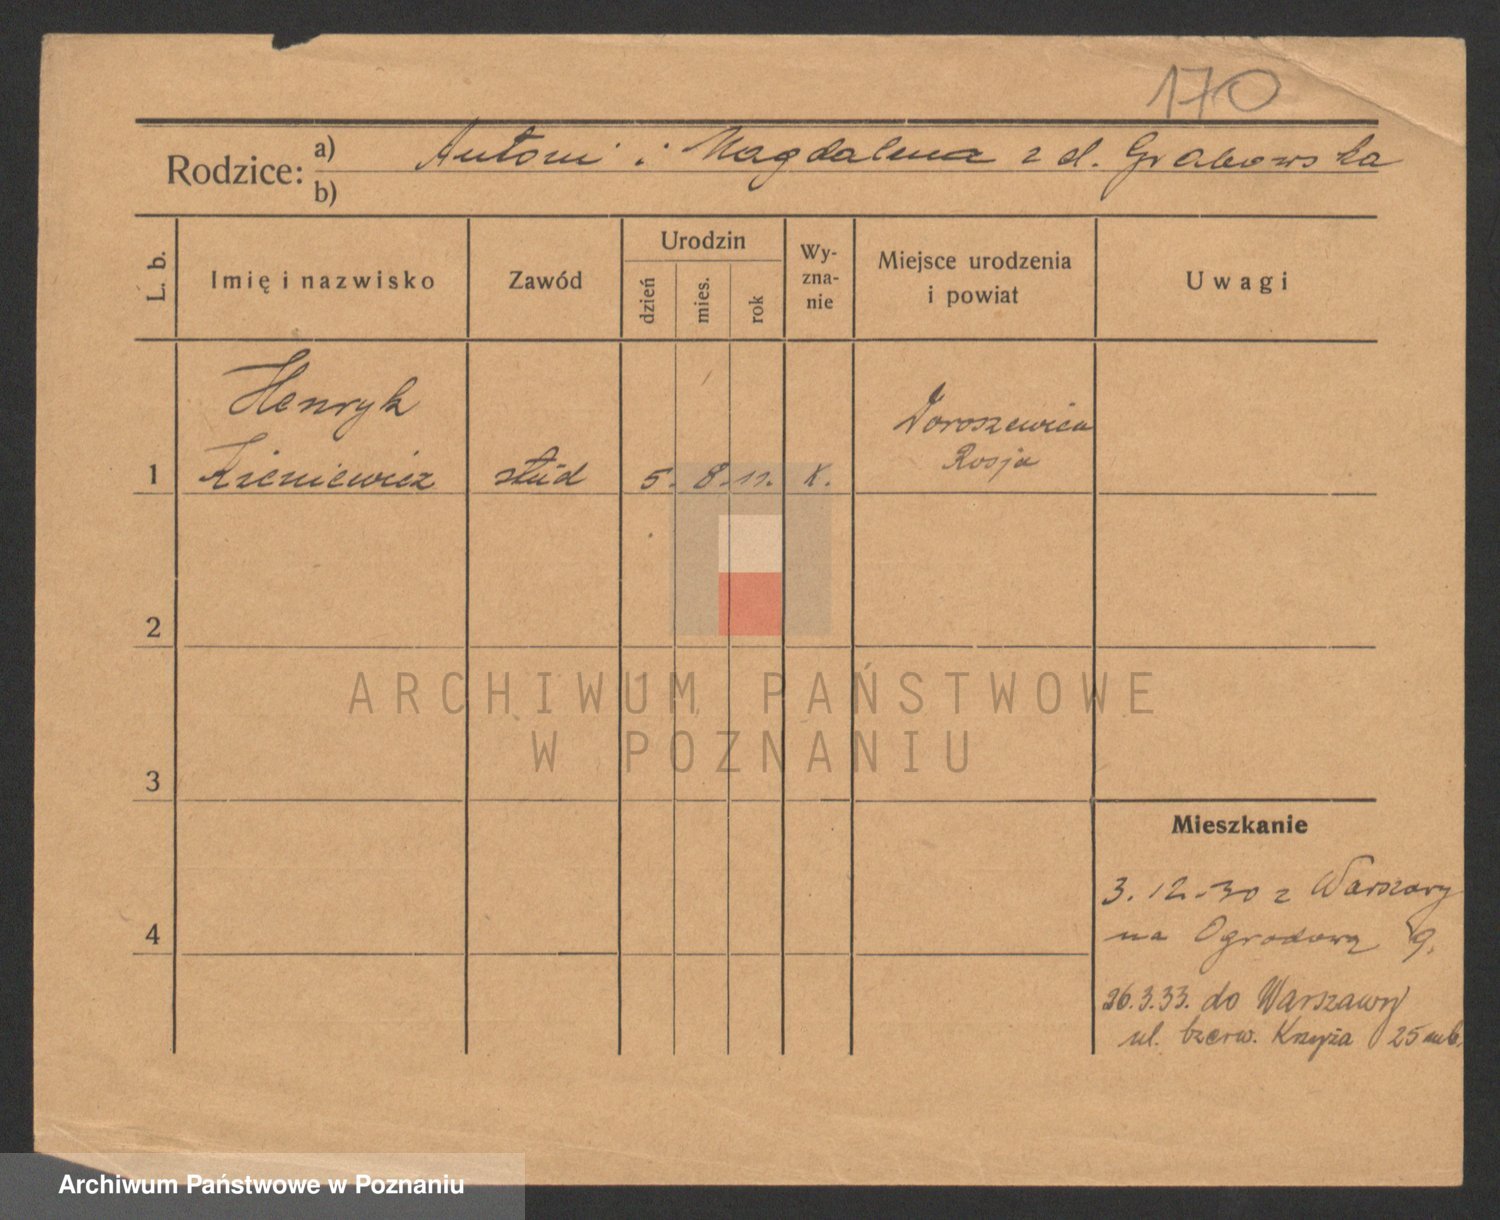 170
Rodzice:
a) Antoni i Magdalena z d. Grabowska
b)
L. b.
Imię i nazwisko
Zawód
Urodzin
dzień
mies.
rok
Wy-
zna-
nie
Miejsce urodzenia
i powiat
Uwagi
Henryk
Doroszewicze
Rosja
1 Kieniewicz stud 5. 8. 11. K.
2
3
4
Mieszkanie
3. 12. 30 z Warszawy
na Ogrodową 9.
26.3.33. do Warszawy
ul. Czerw. Krzyża 25
ARCHIWUM PAŃSTWOWE
W POZNANIU
Archiwum Państwowe w Poznaniu